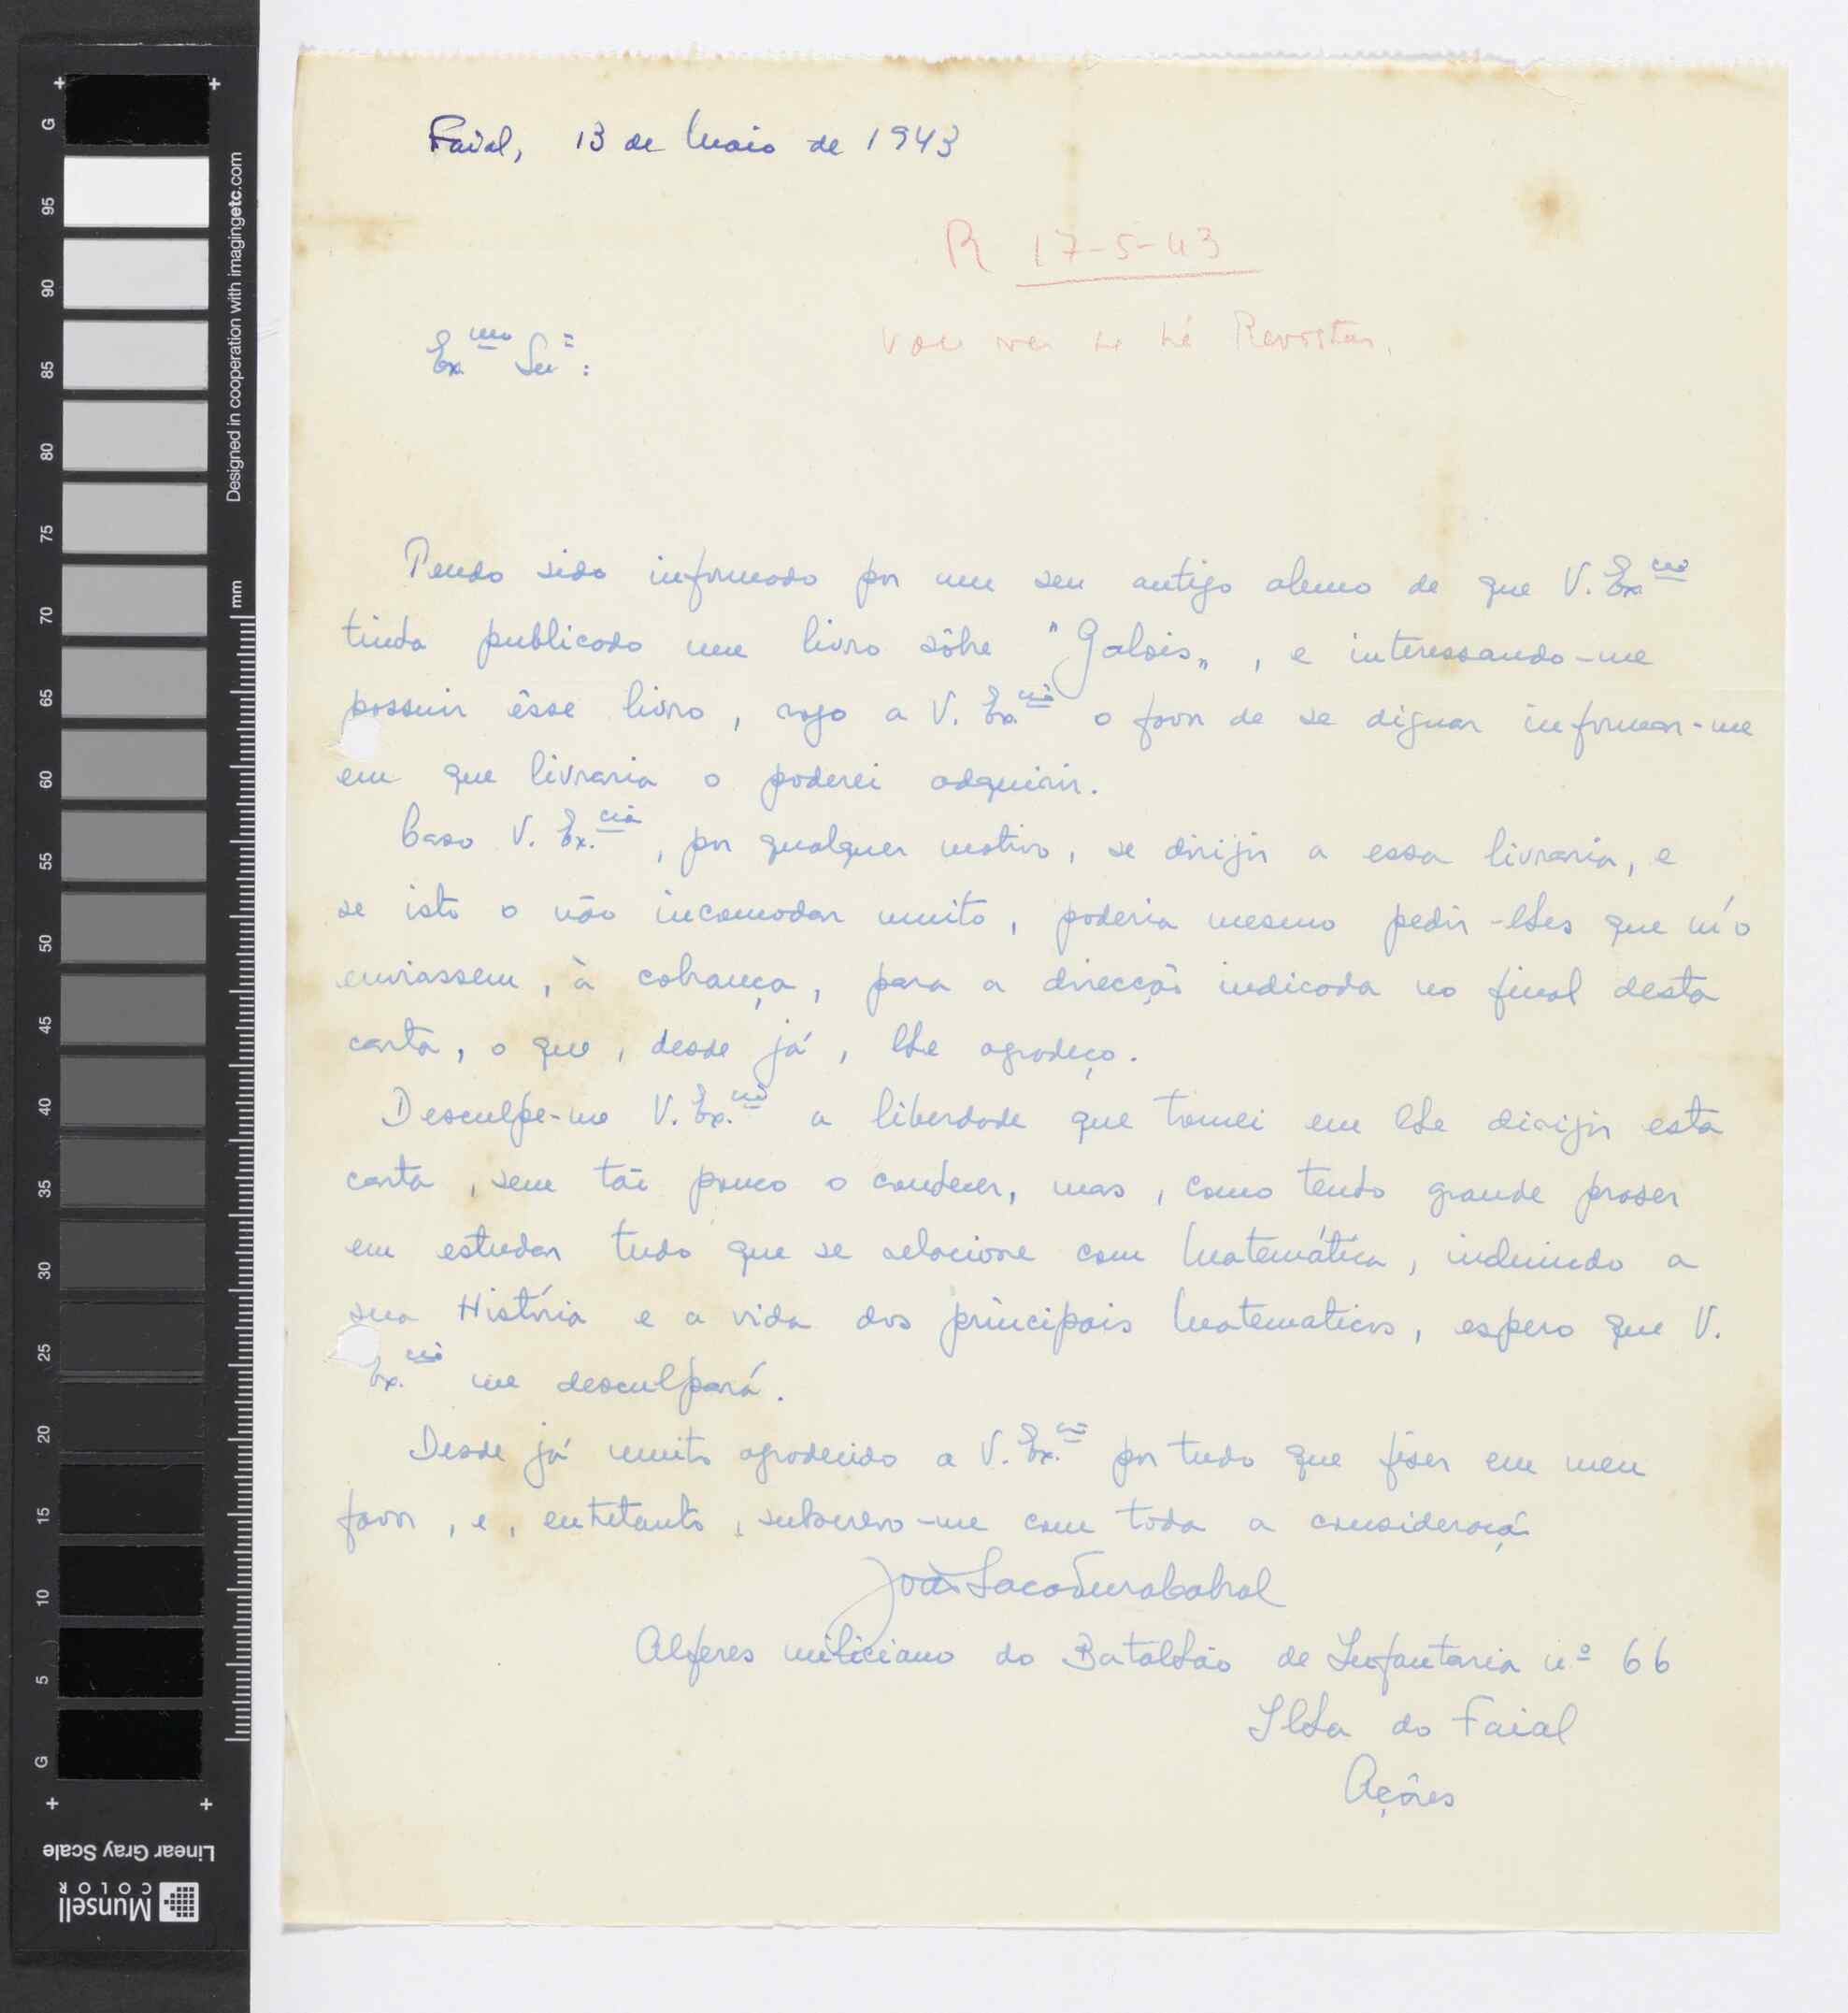 Faial, 13 de Maio de 1943
R 17-5-43
Ex.mo Snr:
vou ver se há Revistas.
Tendo sido informado por um seu antigo aluno de que V. Ex.cia
tinha publicado um livro sôbre "Galois", e interessando-me
possuir êsse livro, rogo a V. Ex.cia o favor de se dignar informar-me
em que livraria o poderei adquirir.
Caso V. Ex.cia, por qualquer motivo, se dirijir a essa livraria, e
se isto o não incomodar muito, poderia mesmo pedir-lhes que m'o
enviassem, à cobrança, para a direcção indicada no final desta
carta, o que, desde já, lhe agradeço.
Desculpe-me V. Ex.cia a liberdade que tomei em lhe dirijir esta
carta, sem tão pouco o conhecer, mas, como tenho grande praser
em estudar tudo que se relacione com Matemática, incluindo a
sua História e a vida dos principais Matematicos, espero que V.
Ex.cia me desculpará.
Desde já muito agradecido a V. Ex.cia por tudo que fiser em meu
favor, e, entretanto, subscrevo-me com toda a consideração
João Sacadura Cabral
Alferes miliciano do Batalhão de Infantaria nº 66
Ilha do Faial
Açôres
G
95
90
85
80
75
70
65
60
55
50
45
40
35
30
25
20
15
10
5
G
Designed in cooperation with imagingetc.com
mm
Linear Gray Scale
Munsell
COLOR